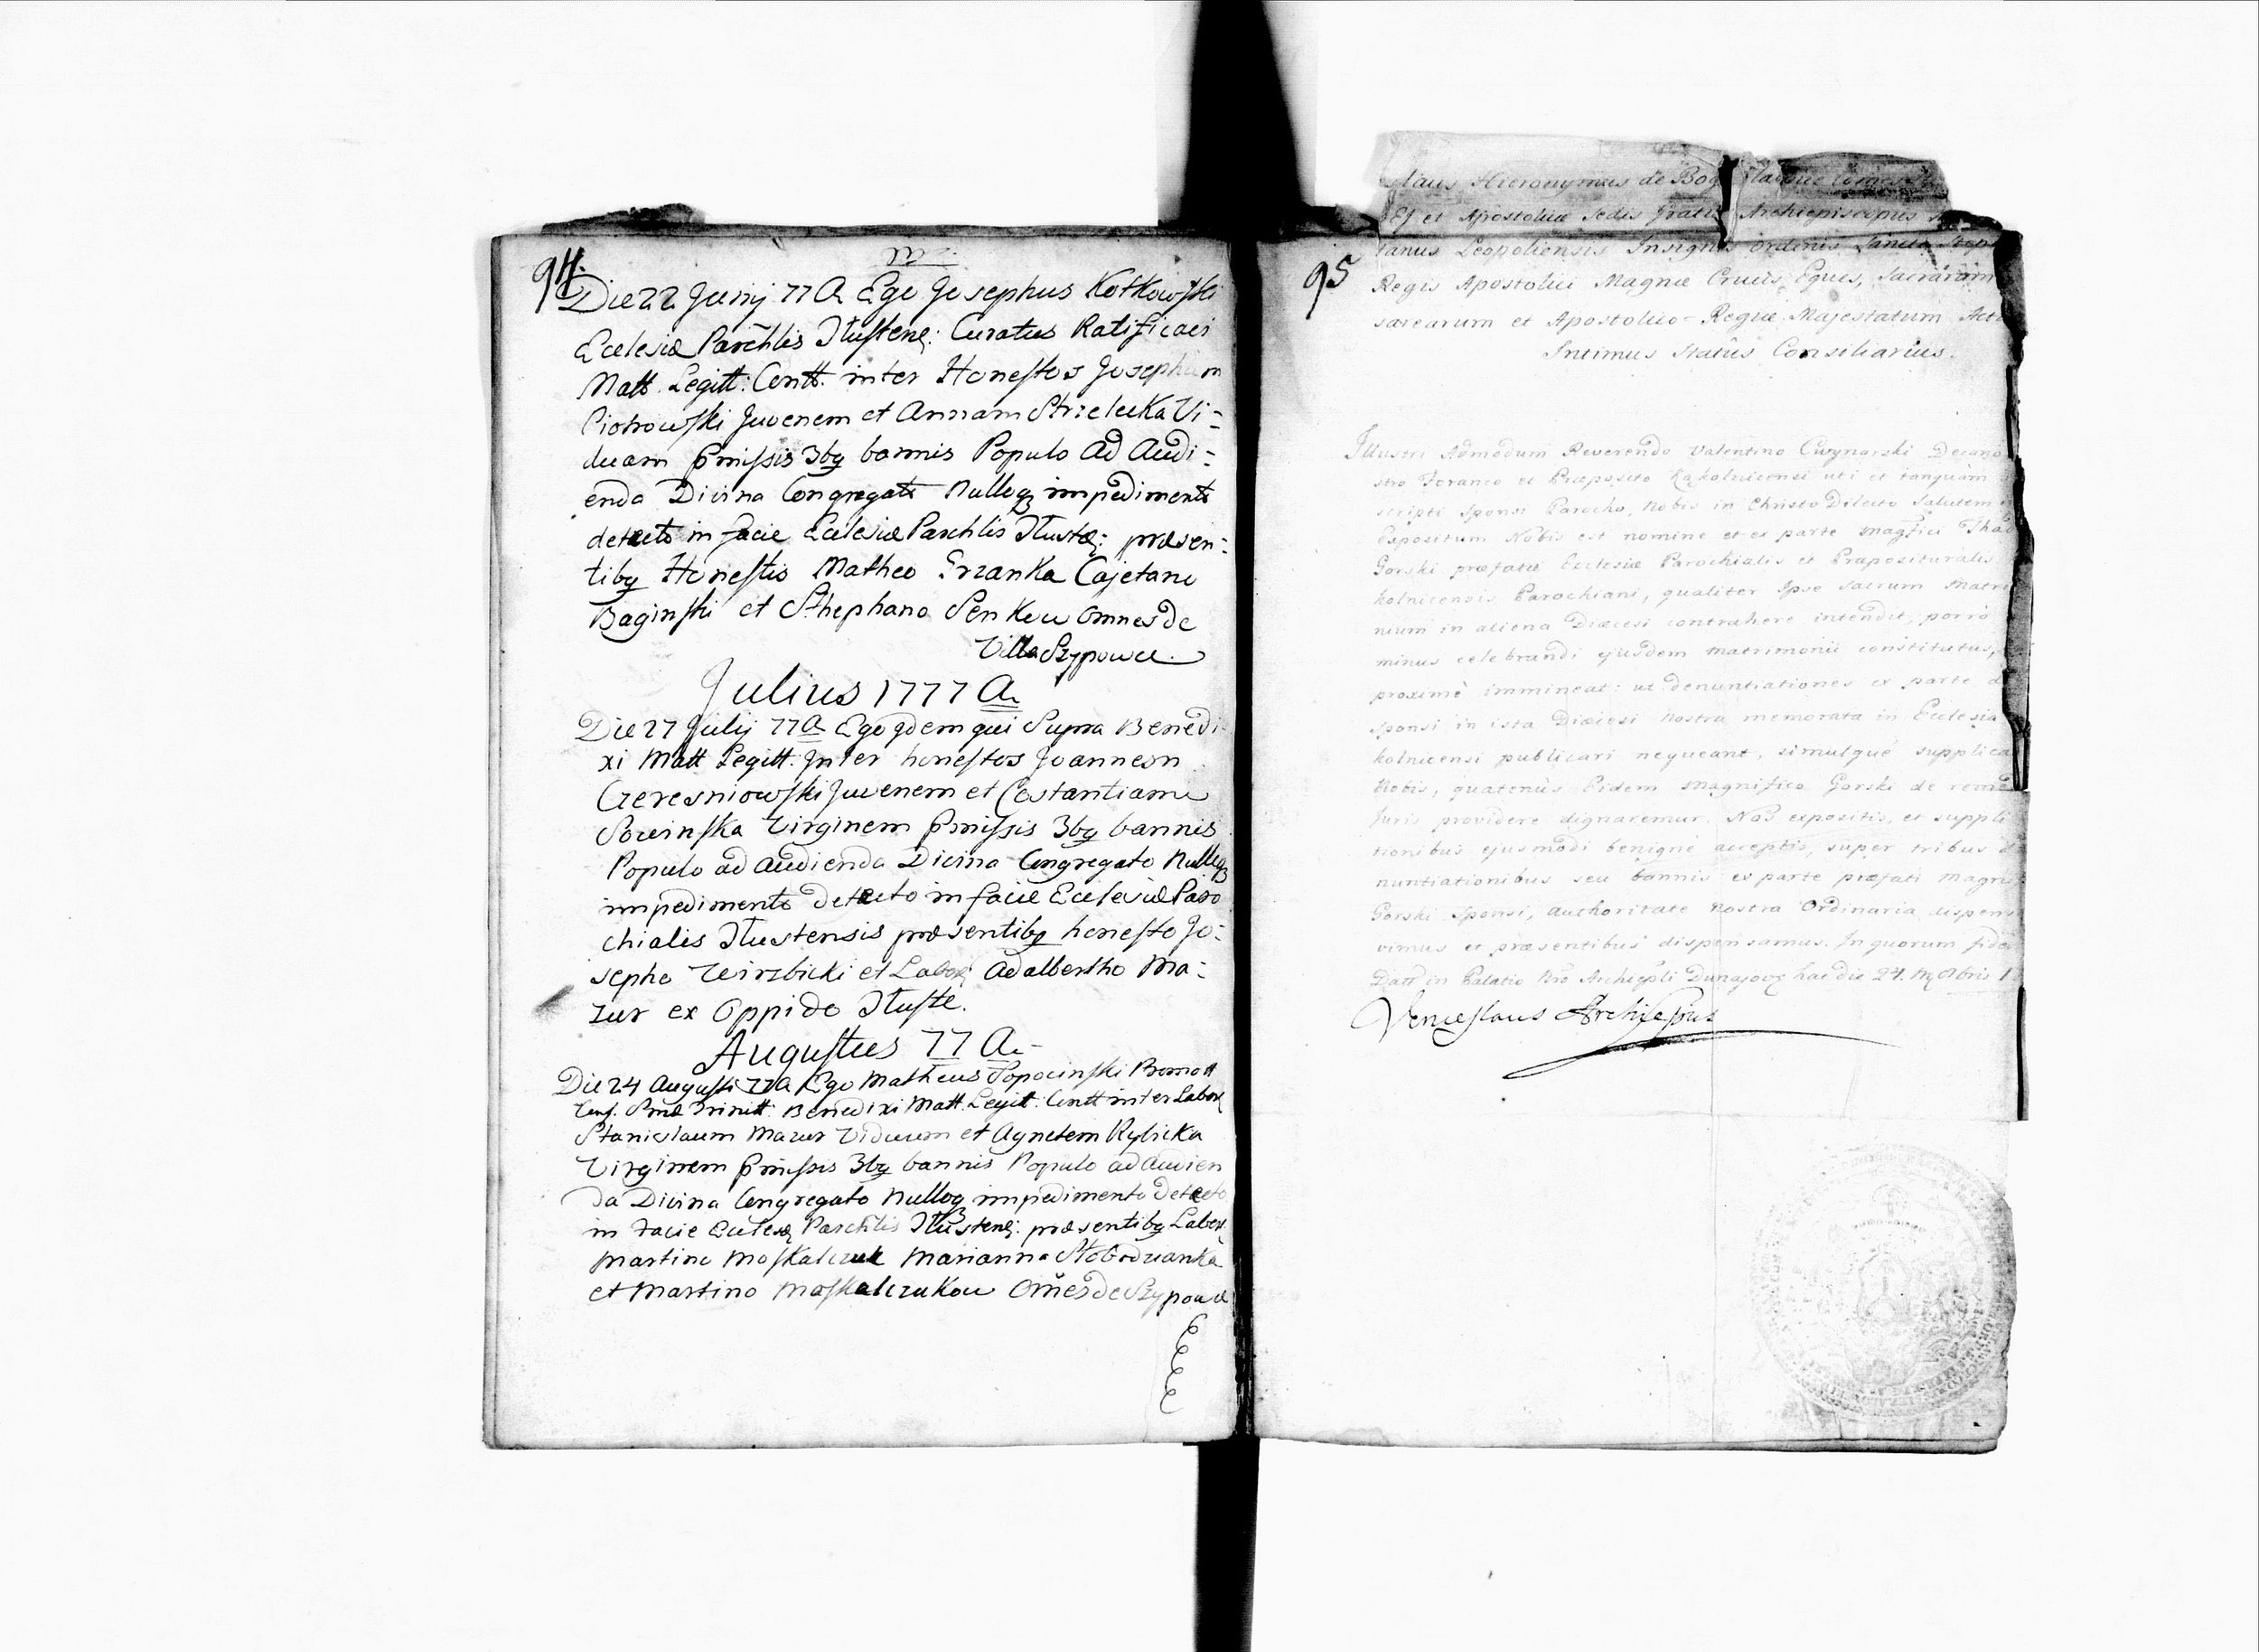 94.
Die 22 Junij 77 A Ego Josephus Kotkowski
Ecclesiæ Parchlis Tłustenę: Curatus Ratificavi
Matt. Legitt: Contt. inter Honestos Josephum
Piotrowski Juvenem et Annam Strzelecka Vi-
duam pmissis 3bq bannis Populo ad Audi-
enda Divina Congregato Nulloq impedimento
detecto in facie Ecclesiæ Parchlis Tłustę: præsen-
tibq Honestis Matheo Grzanka Cajetano
Baginski et Sthephano Senkow omnes de
Villa Szypowce.
Julius 1777 A
Die 27 Julij 77 A Ego qdem qui Supra Benedi-
xi Matt Legitt. Inter honestos Joannem
Czeresniowski Juvenem et Costantiam
Sowinska Virginem pmissis 3bq bannis
Populo ad audienda Divina Congregato Nulloq
impedimento detecto in facie Ecclesiæ Paro
chialis Tłustensis præsentibq honesto Jo-
sepho Wirzbicki et Labor: Adalbertho Ma-
zur ex Oppido Tłuste.
Augustus 77 A.
Die 24 Augusti 77 A Ego Matheus Popocinski
Benedixi Matt. Legitt. Contt inter Labor
Stanislaum Mazur Viduum et Agnetem Rybicka
Virginem pmissis 3bq bannis Populo ad audien
da Divina Congregato Nulloq impedimento detecto
in facie Ecclesæ Parchlis Tłustenę: præsentibq Labor.
Martino Moskalczuk Marianna Słobodzianka
et Martino Moskalczukow Omes de Szypowce
95
slaus Hieronymus de Bog
et Apostolicæ Sedis gratia Archiepiscopus
tanus Leopoliensis Insignis Ordinis Sancti Steph
Regis Apostolici Magnæ Crucis Eques, Sacrarum
sarearum et Apostolico-Regiæ Majestatum Actu
Intimus Status Consiliarius.
Illustri Admodum Reverendo Valentino Cwynarski Decano
stro Foraneo et Præposito Kąkolnicensi uti et tanquam
scripti Sponsi Parocho, Nobis in Christo Dilecto Salutem
Expositum Nobis est nomine et ex parte Magfici Tha
Gorski præfatæ Ecclesiæ Parochialis et Præposituralis
kolnicensis Parochiani, qualiter Ipse Sacrum Matri
nium in aliena Diœcesi contrahere intendit, porro
minus celebrandi ejusdem matrimonii constitutus,
proximè immineat: ut denuntiationes ex parte d
sponsi in ista Diœcesi Nostra memorata in Ecclesia
kolnicensi publicari nequeant, simulque supplica
Nobis, quatenùs Eidem Magnifico Gorski de reme
Juris providere dignaremur. Nos expositis, et suppli
tionibus ejusmodi benignè acceptis, super tribus d
nuntiationibus seu bannis ex parte præfati Magni
Gorski Sponsi, authoritate Nostra Ordinaria dispen
vimus et præsentibus dispensamus. In quorum fide
Datt in Palatio Nro Archiepli Dunajow hac die 27.
Venceslaus Archieppus